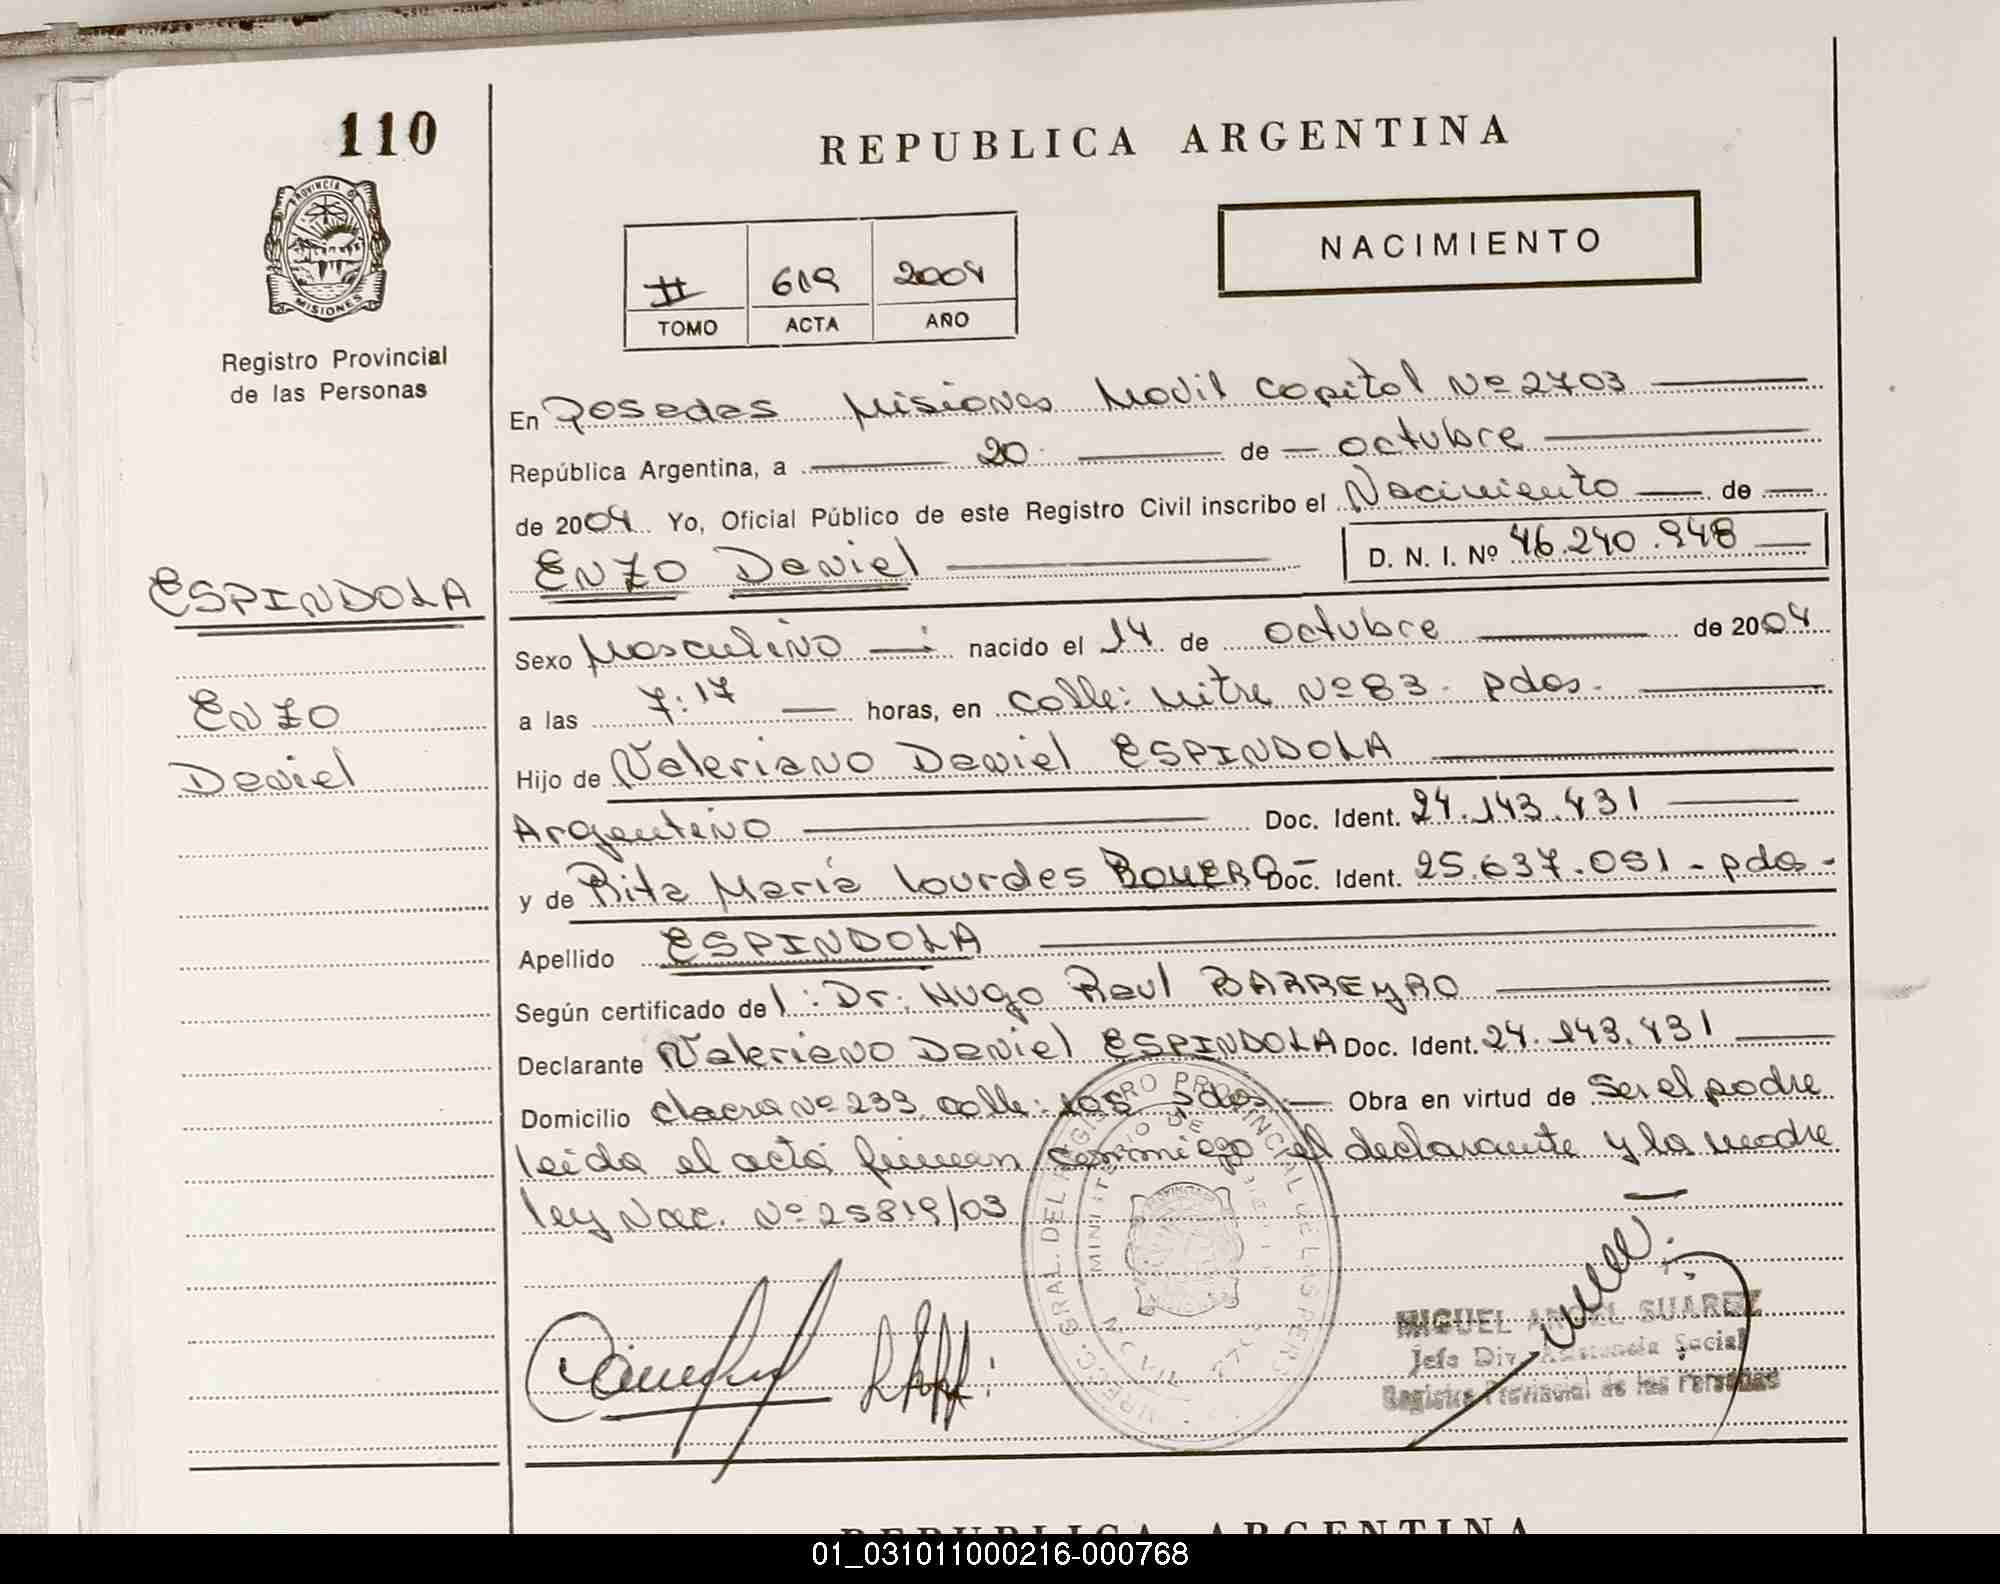 110
REPUBLICA ARGENTINA
PROVINCIA DE
MISIONES
Registro Provincial
de las Personas
NACIMIENTO
II 619 2004
TOMO ACTA AÑO
En Posadas Misiones Movil Capital Nº 2703
República Argentina, a 20 de octubre
de 2004 Yo, Oficial Público de este Registro Civil inscribo el Nacimiento de
ENZO Daniel D. N. I. Nº 46.240.948
ESPINDOLA
Enzo
Daniel
Sexo Masculino nacido el 14 de octubre de 2004
a las 7:17 horas, en calle: Mitre Nº 83 - pdas.
Hijo de Valeriano Daniel ESPINDOLA
Argentino Doc. Ident. 24.143.431
y de Rita María Lourdes Doc. Ident. 25.637.051 - pdas -
Apellido ESPINDOLA
Según certificado del: Dr: Hugo Raul BARREYRO
Declarante Valeriano Daniel ESPINDOLA Doc. Ident. 24.143.431
Domicilio chacra Nº 233 calle: 105 pdas. Obra en virtud de Ser el padre
leida el acta firman conmigo el declarante y la madre
ley Nac. Nº 25819/03
DIRECC. GRAL. DEL REGISTRO PROVINCIAL DE LAS PERS
MINISTERIO DE
MIGUEL ANGEL SUAREZ
Jefe Div. Asistencia Social
Registro Provincial de las Personas
REPUBLICA ARGENTINA
01_031011000216-000768